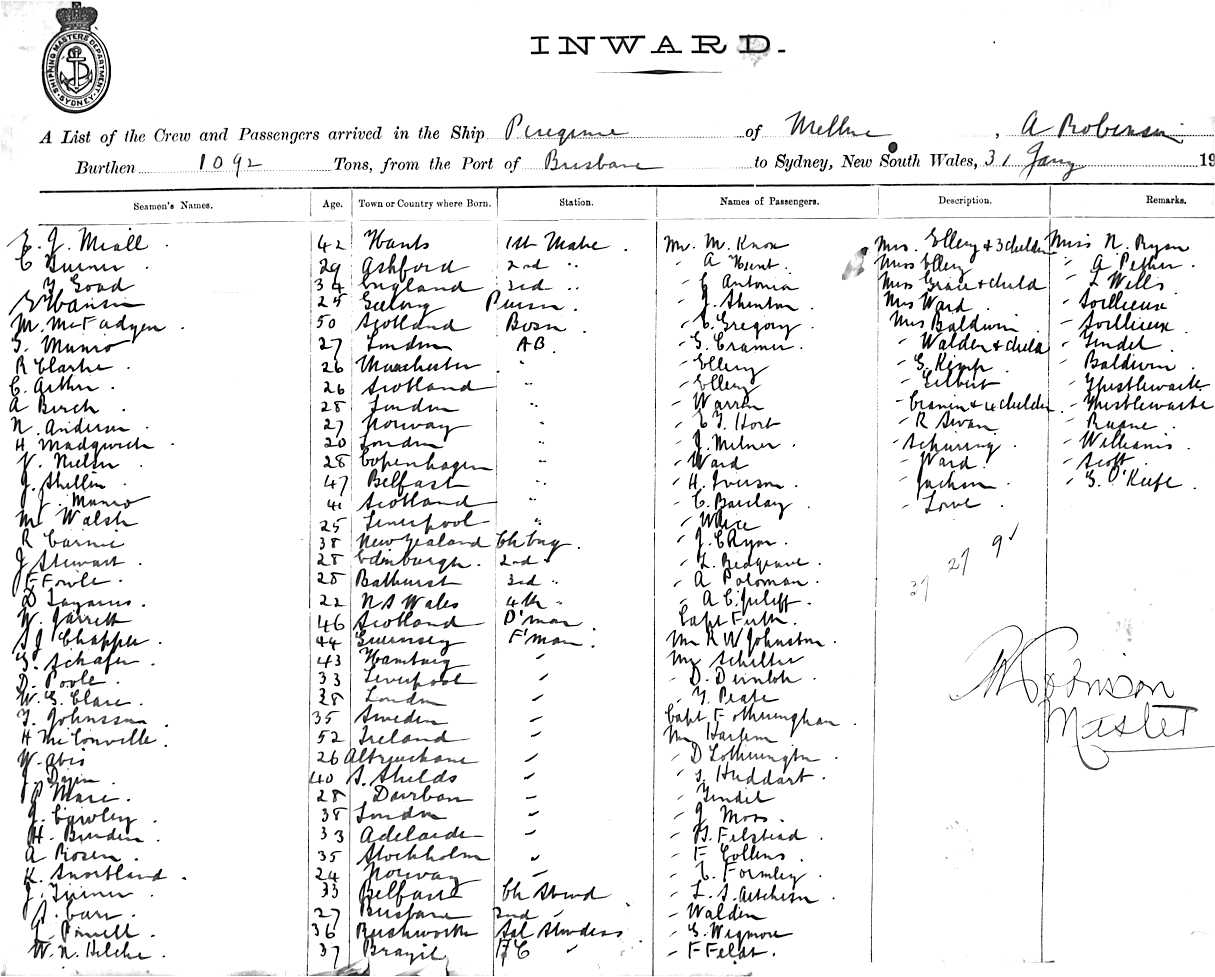 SHIPPING MASTERS DEPARTMENT
SYDNEY
INWARD.
A List of the Crew and Passengers arrived in the Ship Peregrine of Melbne, A Robinson
Burthen 1092 Tons, from the Port of Brisbane to Sydney, New South Wales, 31 Jany 19
Seamen's Names. Age. Town or Country where Born. Station. Names of Passengers. Description. Remarks.
E. J. Miall 42 Hants 1st Mate. Mr. M. Knox Mrs. Ellery & 3 children Miss N. Ryan
C Turner 29 Ashford 2nd " " A Hunt. Miss Ellery " A Pether
Y Goad 34 England 3rd " " C Antonia Miss Grace & child " L Wells
25 Geelong Purser " J. Shenton Mrs Ward " Soillieux
M. McFadyen 50 Scotland Bosn " C. Gregory Mrs Baldwin " Soillieux
G. Munro 27 London AB. " G. Cramer " Walden & child " Gindel
R Clarke 26 Manchester " " Ellery " G. Kemp " Baldwin
C. Arthur 26 Scotland " " Ellery " Gilbert " Thistlewaite
A Birch 28 London " " Warren " Cranin & 4 children " Thistlewaite
N. Anderson 27 Norway " " E Y. Hort " R Swan " Ruane
H Madgwick 20 London " " J. Milner " Schuring " Williams
V. Nielsen 28 Copenhagen " " Ward " Ward " Scott
J. Shellin 47 Belfast " " H. Iverson " Jackson " G. O'Keefe
J. Munro 41 Scotland " " C. Barclay " Lowe
M. Walsh 25 Liverpool " "
R Carnie 38 New Zealand Ch Eng. " J. C Ryan
J Stewart 28 Edinburgh. 2nd " " L. Redgrave 37 27 9
F Fowle 28 Bathurst 3rd " " A Poloman
D Lazarus 22 N S Wales 4th " " A C. Juliff
W. Garrett 46 Scotland D'man Capt Firth
S J Chapple 44 Guernsey F'man. Mr R W Johnston
G. Schafer 43 Hamburg " Mr Schiller
D. Poole 33 Liverpool " " D.
W. G. Clare 28 London " " Y. Peate A Robinson
Y. Johnsson 35 Sweden " Capt F Fotheringham Master
H McConville 52 Ireland " Mr
W. Abis 26 " " D Lotherington
J Dizin 40 S. Shields " " G Huddart
P Mare 28 Durban " " Gindel
J. Cawley 38 London " " J Moss
H. Burden 33 Adelaide " " B. Felstead
A Rosen 35 Stockholm " " F Collins
K. Snortland 24 Norway " " C. Formley
J. Turner 33 Belfast Ch Stewd " L. S. Aitchison
Carr 27 Brisbane 2nd " " Walden
J. Powell 36 Rushworth Sal Stwdess " G. Wigmore
W. N. Hilche 37 Brazil F C " " F Feldt